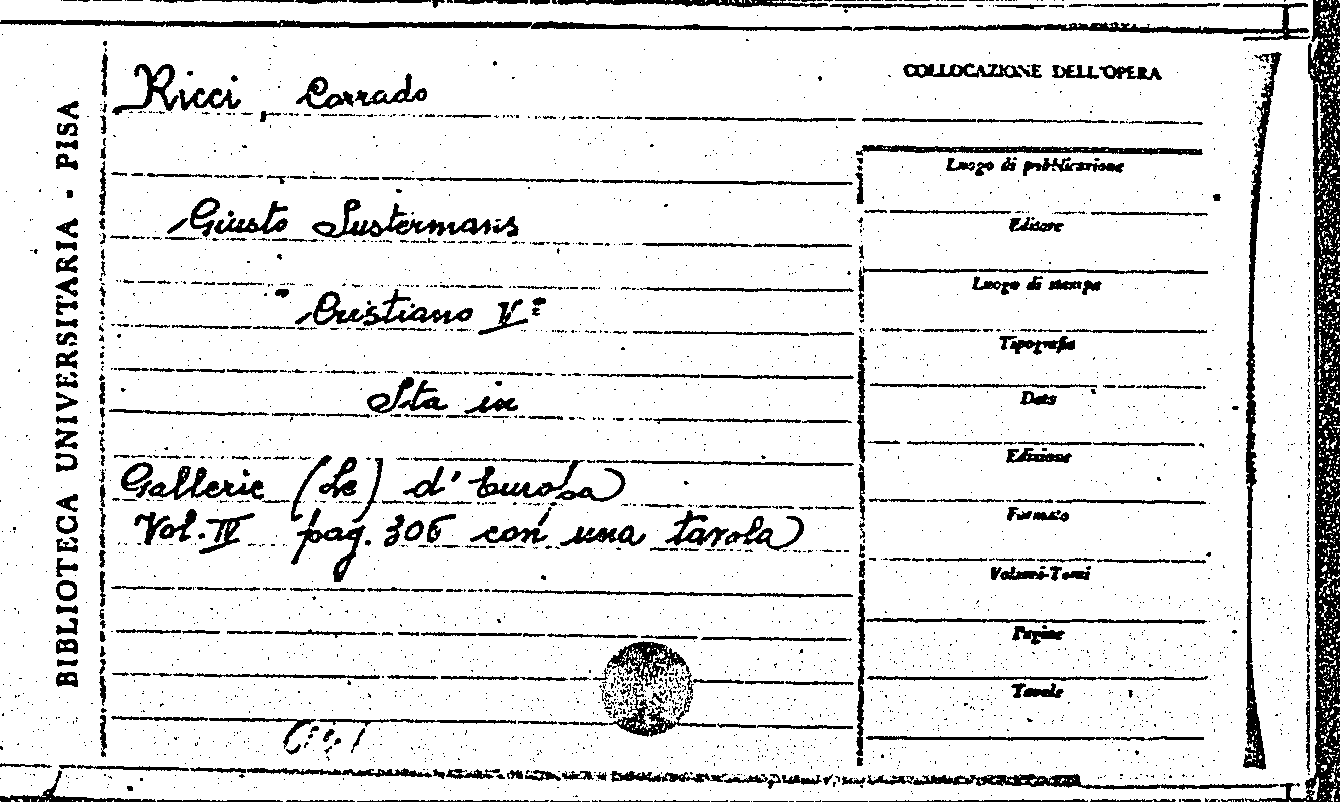 BIBLIOTECA UNIVERSITARIA - PISA
Ricci, Corrado
COLLOCAZIONE DELL'OPERA
Giusto Sustermans
Cristiano V°
Sta in
Gallerie (Le) d'Europa
Vol. IV pag. 306 con una tavola
Luogo di pubblicazione
Editore
Luogo di stampa
Tipografia
Data
Edizione
Formato
Volumi-Tomi
Pagine
Tavole